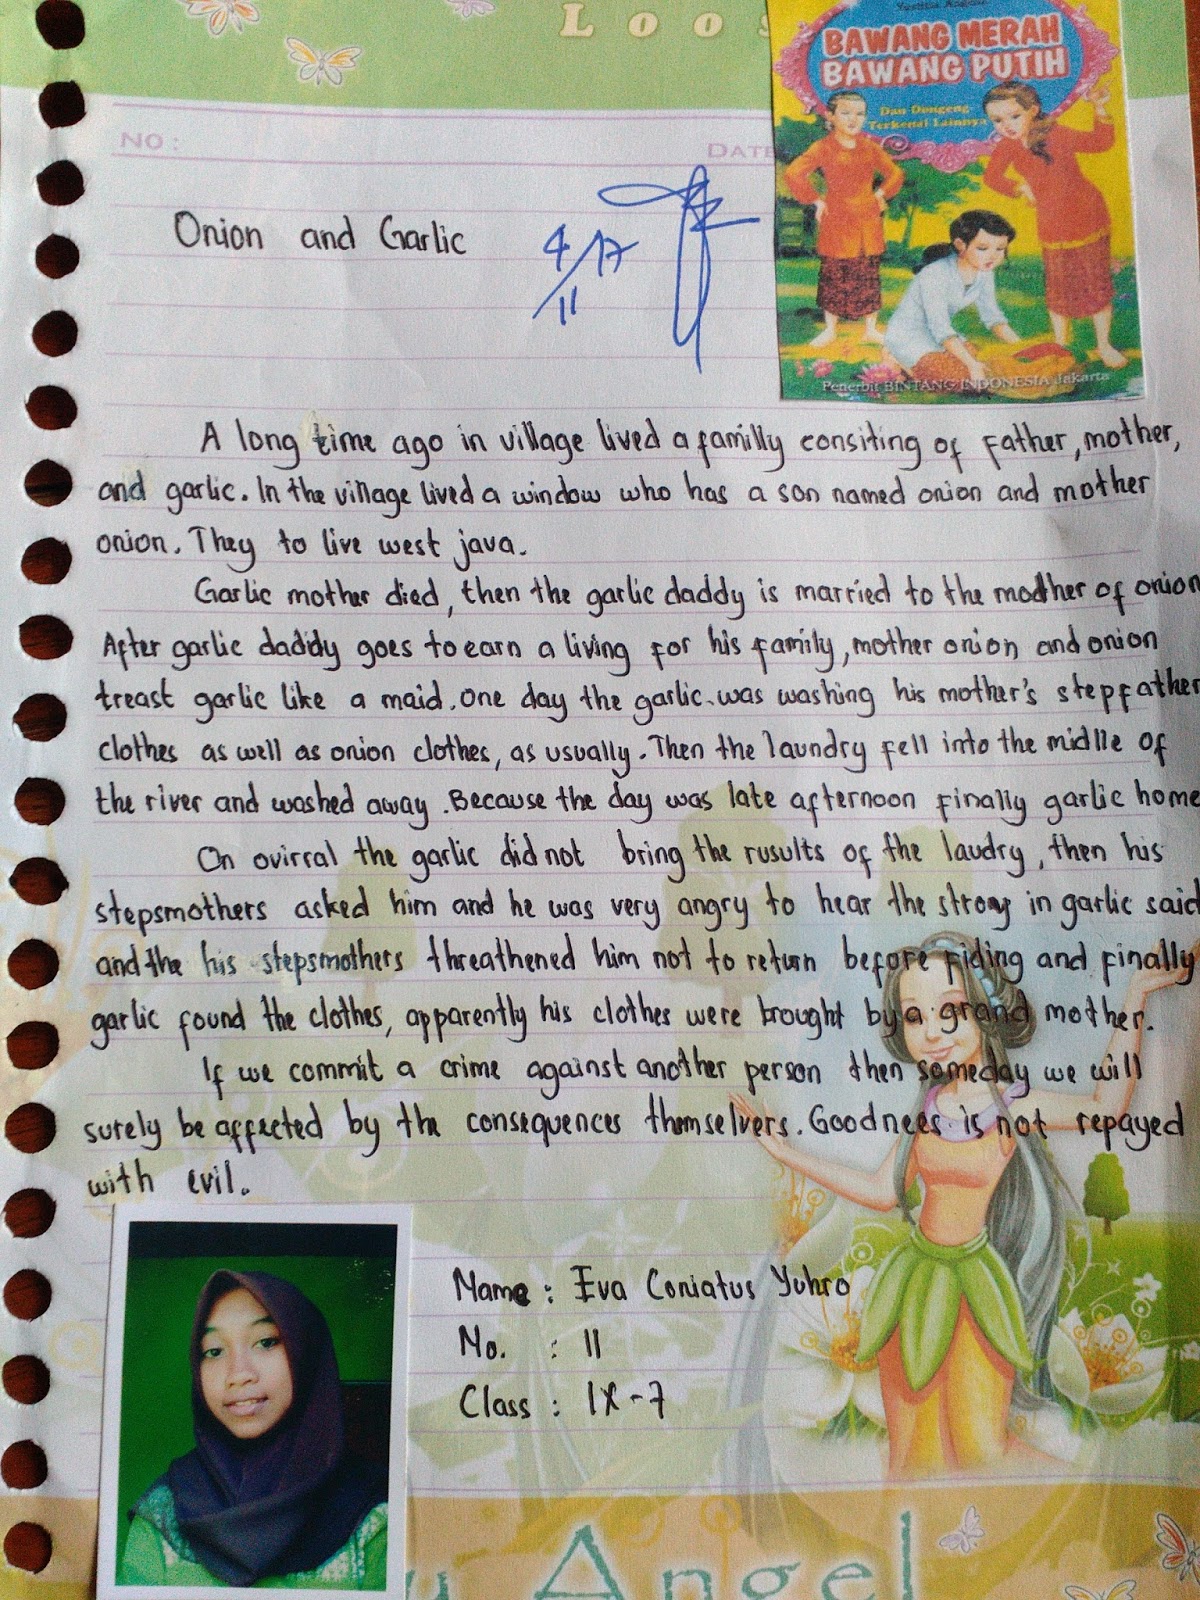 Loos
BAWANG MERAH
BAWANG PUTIH
Dan Dongeng
Terkenal Lainnya
Penerbit BINTANG INDONESIA Jakarta
NO :
DATE
Onion and Garlic
4/11 17
A long time ago in village lived a familly consiting of father, mother,
and garlic. In the village lived a window who has a son named onion and mother
onion. They to live west java.
Garlic mother died, then the garlic daddy is married to the modher of onion
After garlic daddy goes to earn a living for his family, mother onion and onion
treast garlic like a maid. One day the garlic was washing his mother's stepfather
clothes as well as onion clothes, as usually. Then the laundry fell into the midlle of
the river and washed away. Because the day was late afternoon finally garlic home
On ovirral the garlic did not bring the rusults of the laudry, then his
stepsmothers asked him and he was very angry to hear the strosy in garlic said
and the his stepsmothers threathened him not to return before fiding and finally
garlic found the clothes, apparently his clothes were brought by a grand mother.
If we commit a crime against another person then someday we will
surely be affected by the consequences themselvers. Goodnees is not repayed
with evil.
Name : Eva Coniatus Yuhro
No. : 11
Class : IX-7
Angel